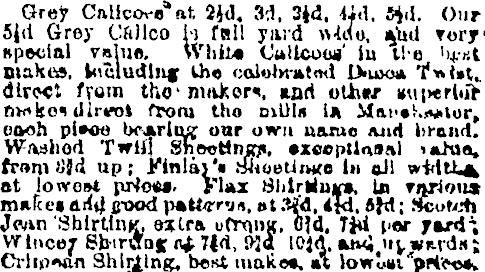 Grey Calicoes at 2½d, 3d, 3½d, 4½d, 5½d. Our
5½d Grey Calico is full yard wide, and very
special value. White Calicoes in the best
makes, including the celebrated Dacca Twist,
direct from the makers, and other superior
makes direct from the mills in Manchester,
each piece bearing our own name and brand.
Washed Twill Sheetings, exceptional value,
from up; Finlay's Sheetings in all widths
at lowest prices. Flax Shirtings, in various
makes and good patterns, at 4½d, 5½d; Scotch
Jean Shirting, extra strong, 6½d, 7½d per yard;
Wincey Shirting at 7½d, 9½d 10½d, and upwards;
Crimean Shirting, best makes, at lowest prices.